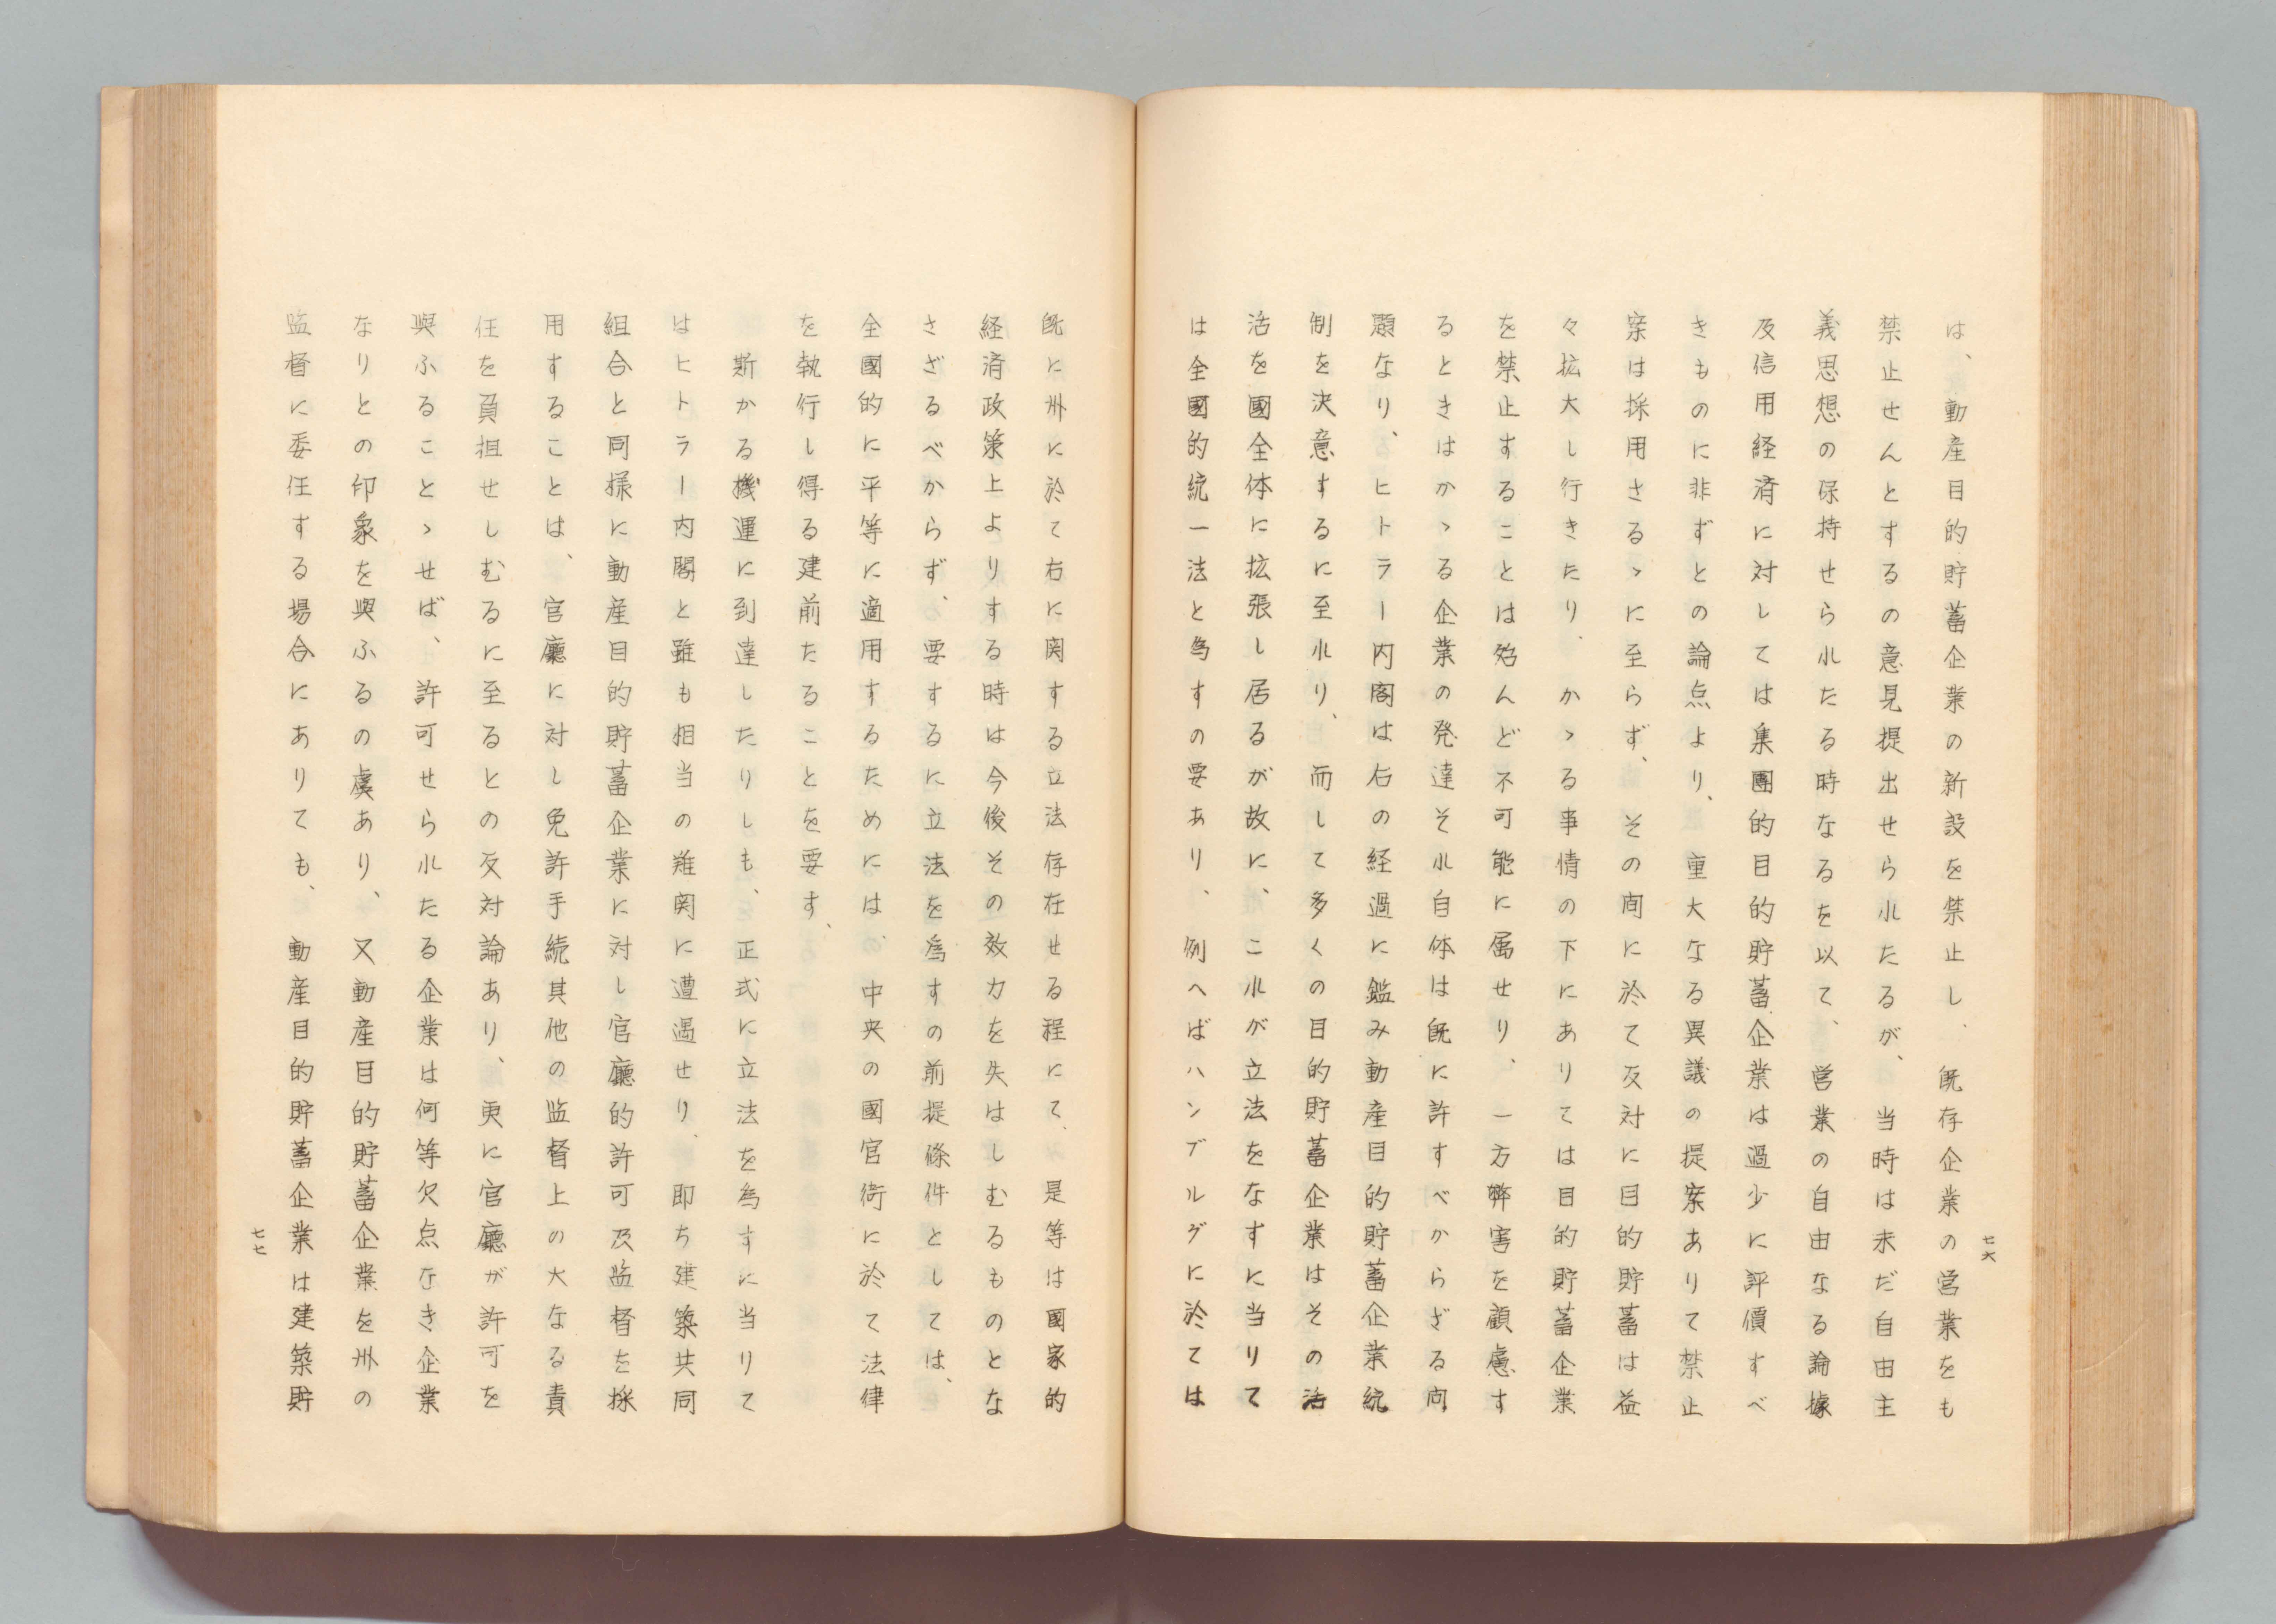 は、動産目的貯蓄企業の新設を禁止し、既存企業の営業をも
禁止せんとするの意見提出せられたるが、当時は未だ自由主
義思想の保持せられたる時なるを以て、営業の自由なる論據
及信用経済に対しては集團的目的貯蓄企業は過少に評價すべ
きものに非ずとの論点より、重大なる異議の提案ありて禁止
案は採用さるゝに至らず、その間に於て反対に目的貯蓄は益
々拡大し行きたり、かゝる事情の下にありては目的貯蓄企業
を禁止することは殆んど不可能に属せり、一方弊害を顧慮す
るときはかゝる企業の発達それ自体は既に許すべからざる問
題なり、ヒトラー内閣は右の経過に鑑み動産目的貯蓄企業統
制を決意するに至れり、而して多くの目的貯蓄企業はその活
活を國全体に拡張し居るが故に、これが立法をなすに当りて
は全國的統一法と為すの要あり、例へばハンブルグに於ては
七六
既に州に於て右に関する立法存在せる程にて、是等は國家的
経済政策上よりする時は今後その効力を失はしむるものとな
さざるべからず、要するに立法を為すの前提條件としては、
全國的に平等に適用するためには、中央の國官衙に於て法律
を執行し得る建前たることを要す、
斯かる機運に到達したりしも、正式に立法を為すに当りて
はヒトラー内閣と雖も相当の難関に遭遇せり、即ち建築共同
組合と同様に動産目的貯蓄企業に対し官廳的許可及監督を採
用することは、官廳に対し免許手続其他の監督上の大なる責
任を負担せしむるに至るとの反対論あり、更に官廳が許可を
與ふることゝせば、許可せられたる企業は何等欠点なき企業
なりとの印象を與ふるの虞あり、又動産目的貯蓄企業を州の
監督に委任する場合にありても、動産目的貯蓄企業は建築貯
七七